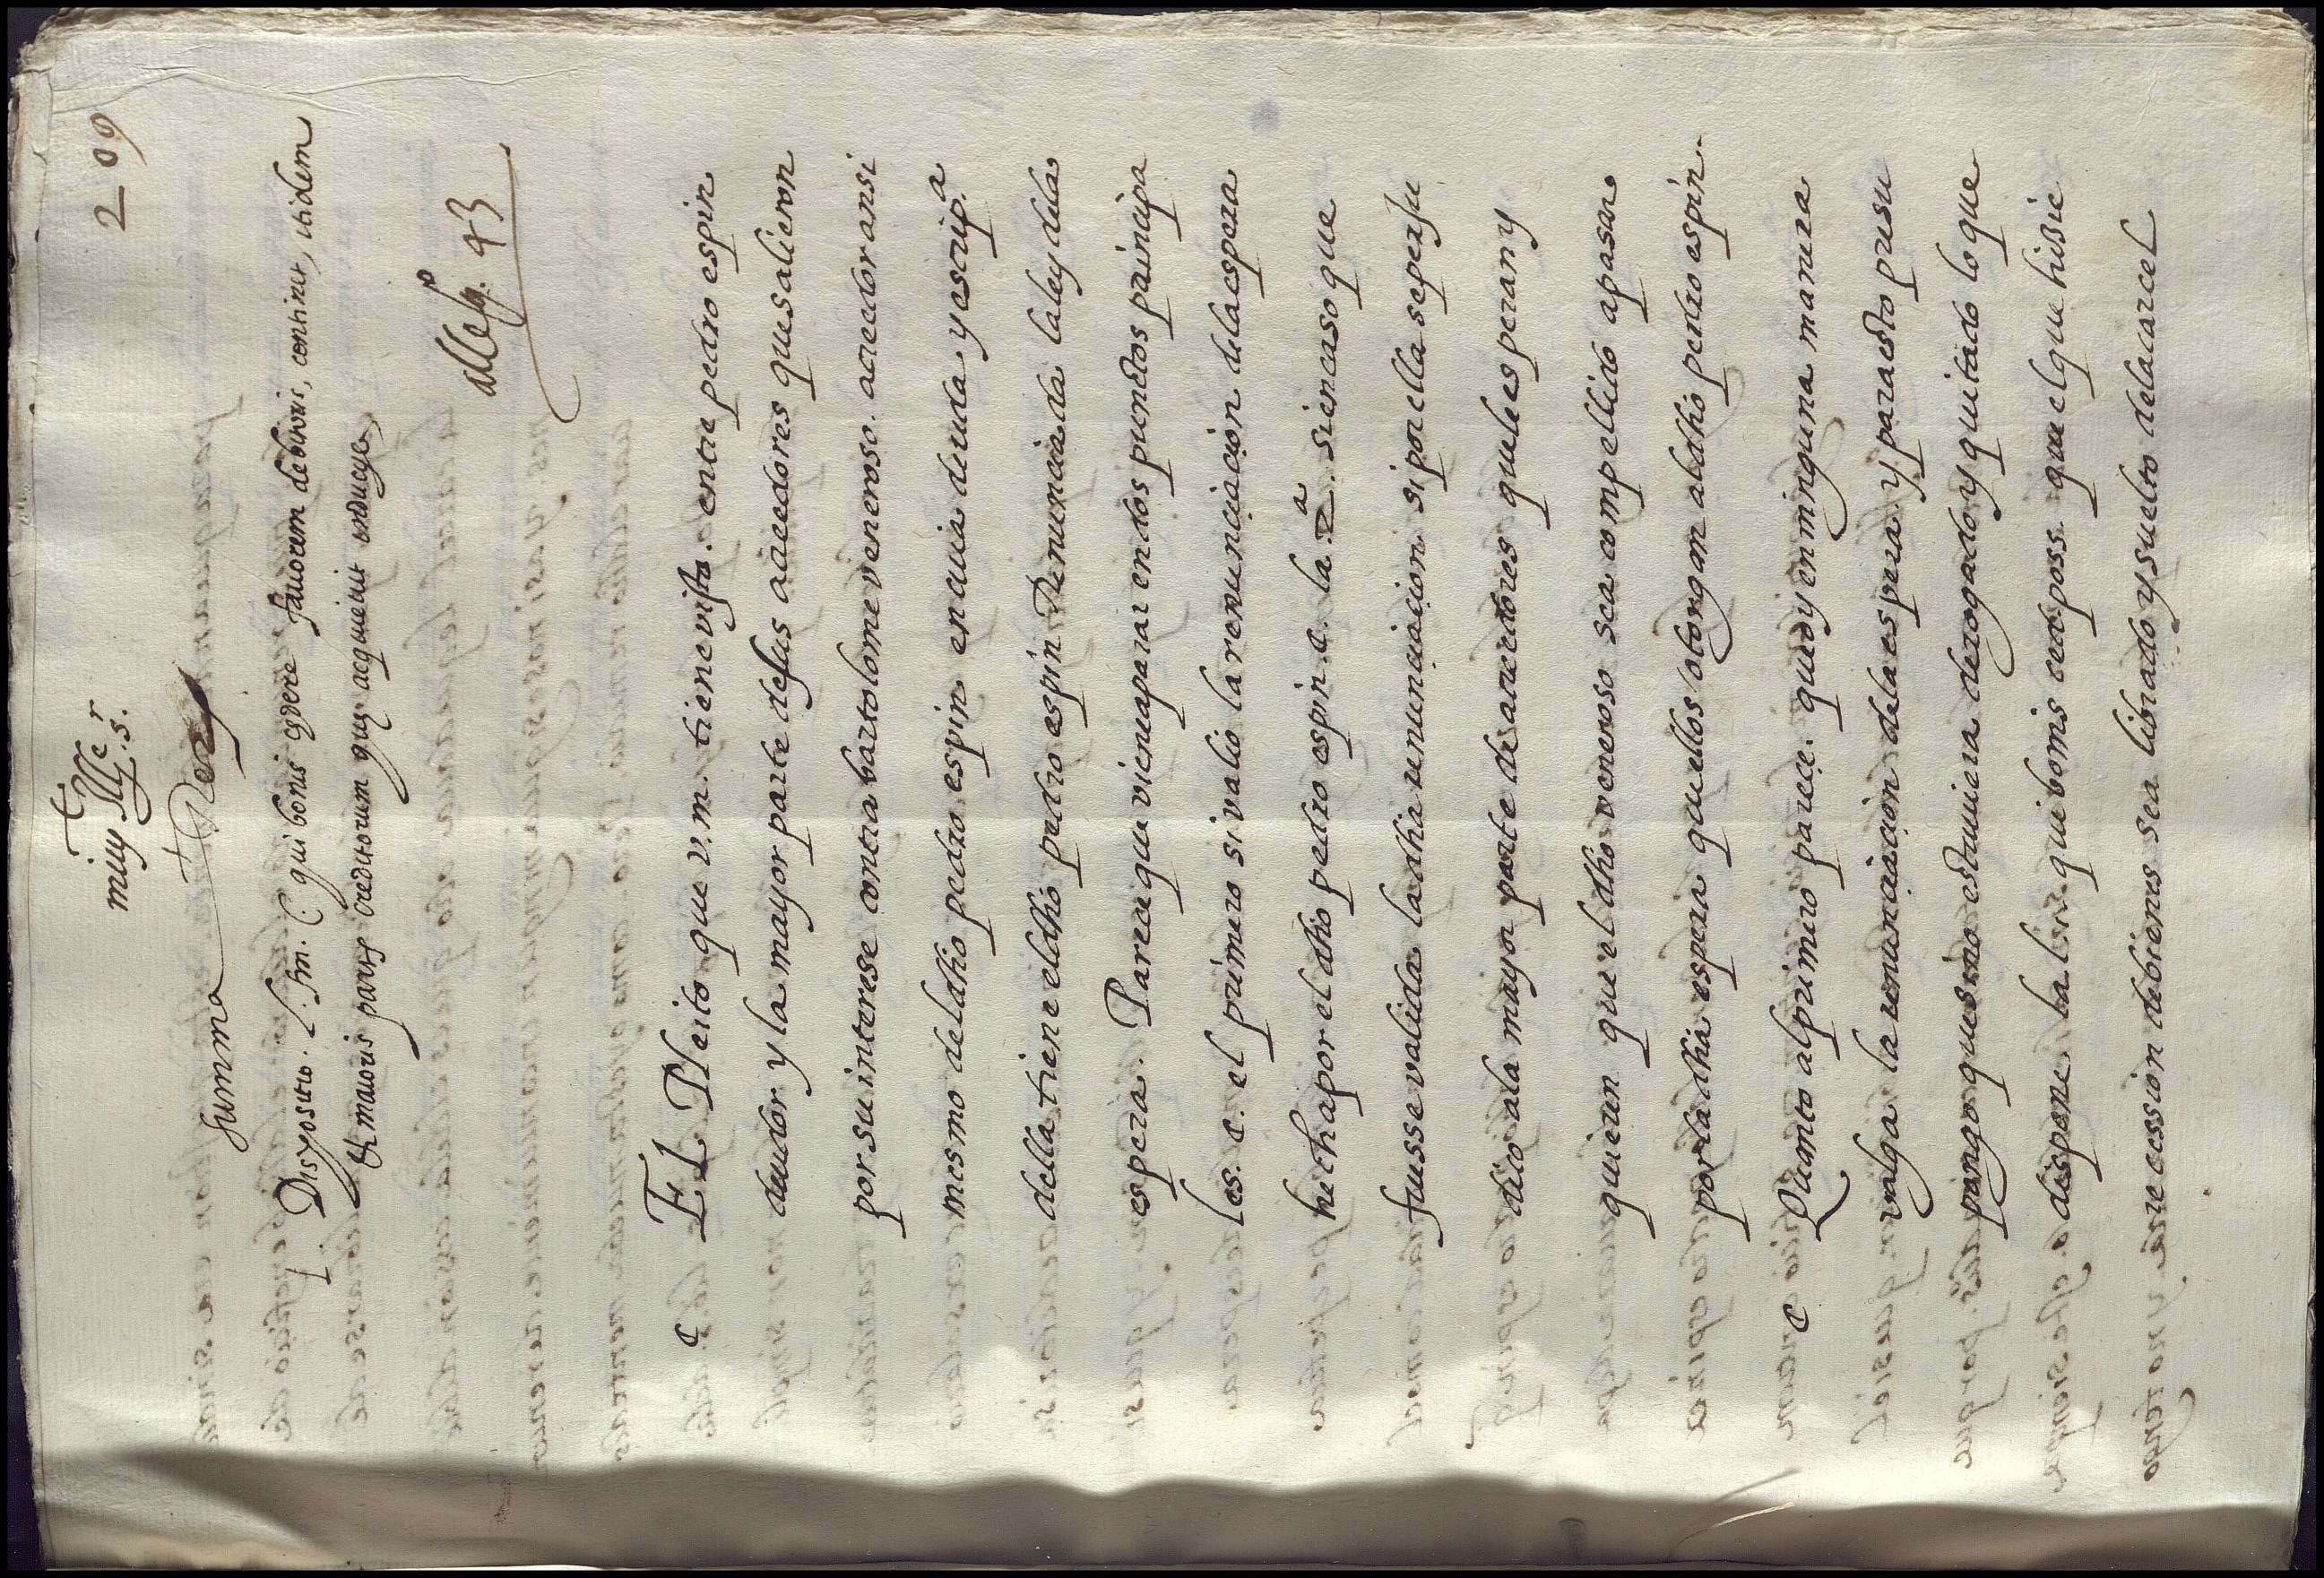 209
muy Ille
s.r
Summa
Dispositio. l. fin. C. qui bonis cedere fauorem debitoris, continet, itidem
& maioris partis creditorum quęm acquirit
Alleg.o 43
c EL Pleito que v.m. tiene visto. entre pedro espin
deudor y la mayor parte de sus acreedores que salieron
por su interese contra bartolome veneroso. acreedor ansi
mesmo del dho pedro espin en cuia deuda y escrip.a
della tiene el dho pedro espin Renunciada la ley dela
espera. Parece que viene aparar en dos punctos principa
les. c. el primero si valio la renunciacion dela espera
hecha por el dho pedro espin. c. la .2.a si en caso que
fuesse valida la dha renunciacion si por ella se perju
dico ala mayor parte de acreedores que le esperan y
quieren que el dho veneroso sea compellido a pasar
por la dha espera que ellos otorgan al dho pedro espin.
c Quanto al primero parece. que oy en ninguna manera
valga la renunciacion dela espera. y para esto presu
pongo que si no estuuiera derogado y quitado lo que
dispone la l. qui bonis ced. poss. que el que hisie
re cession de bienes sea librado y suelto dela carcel